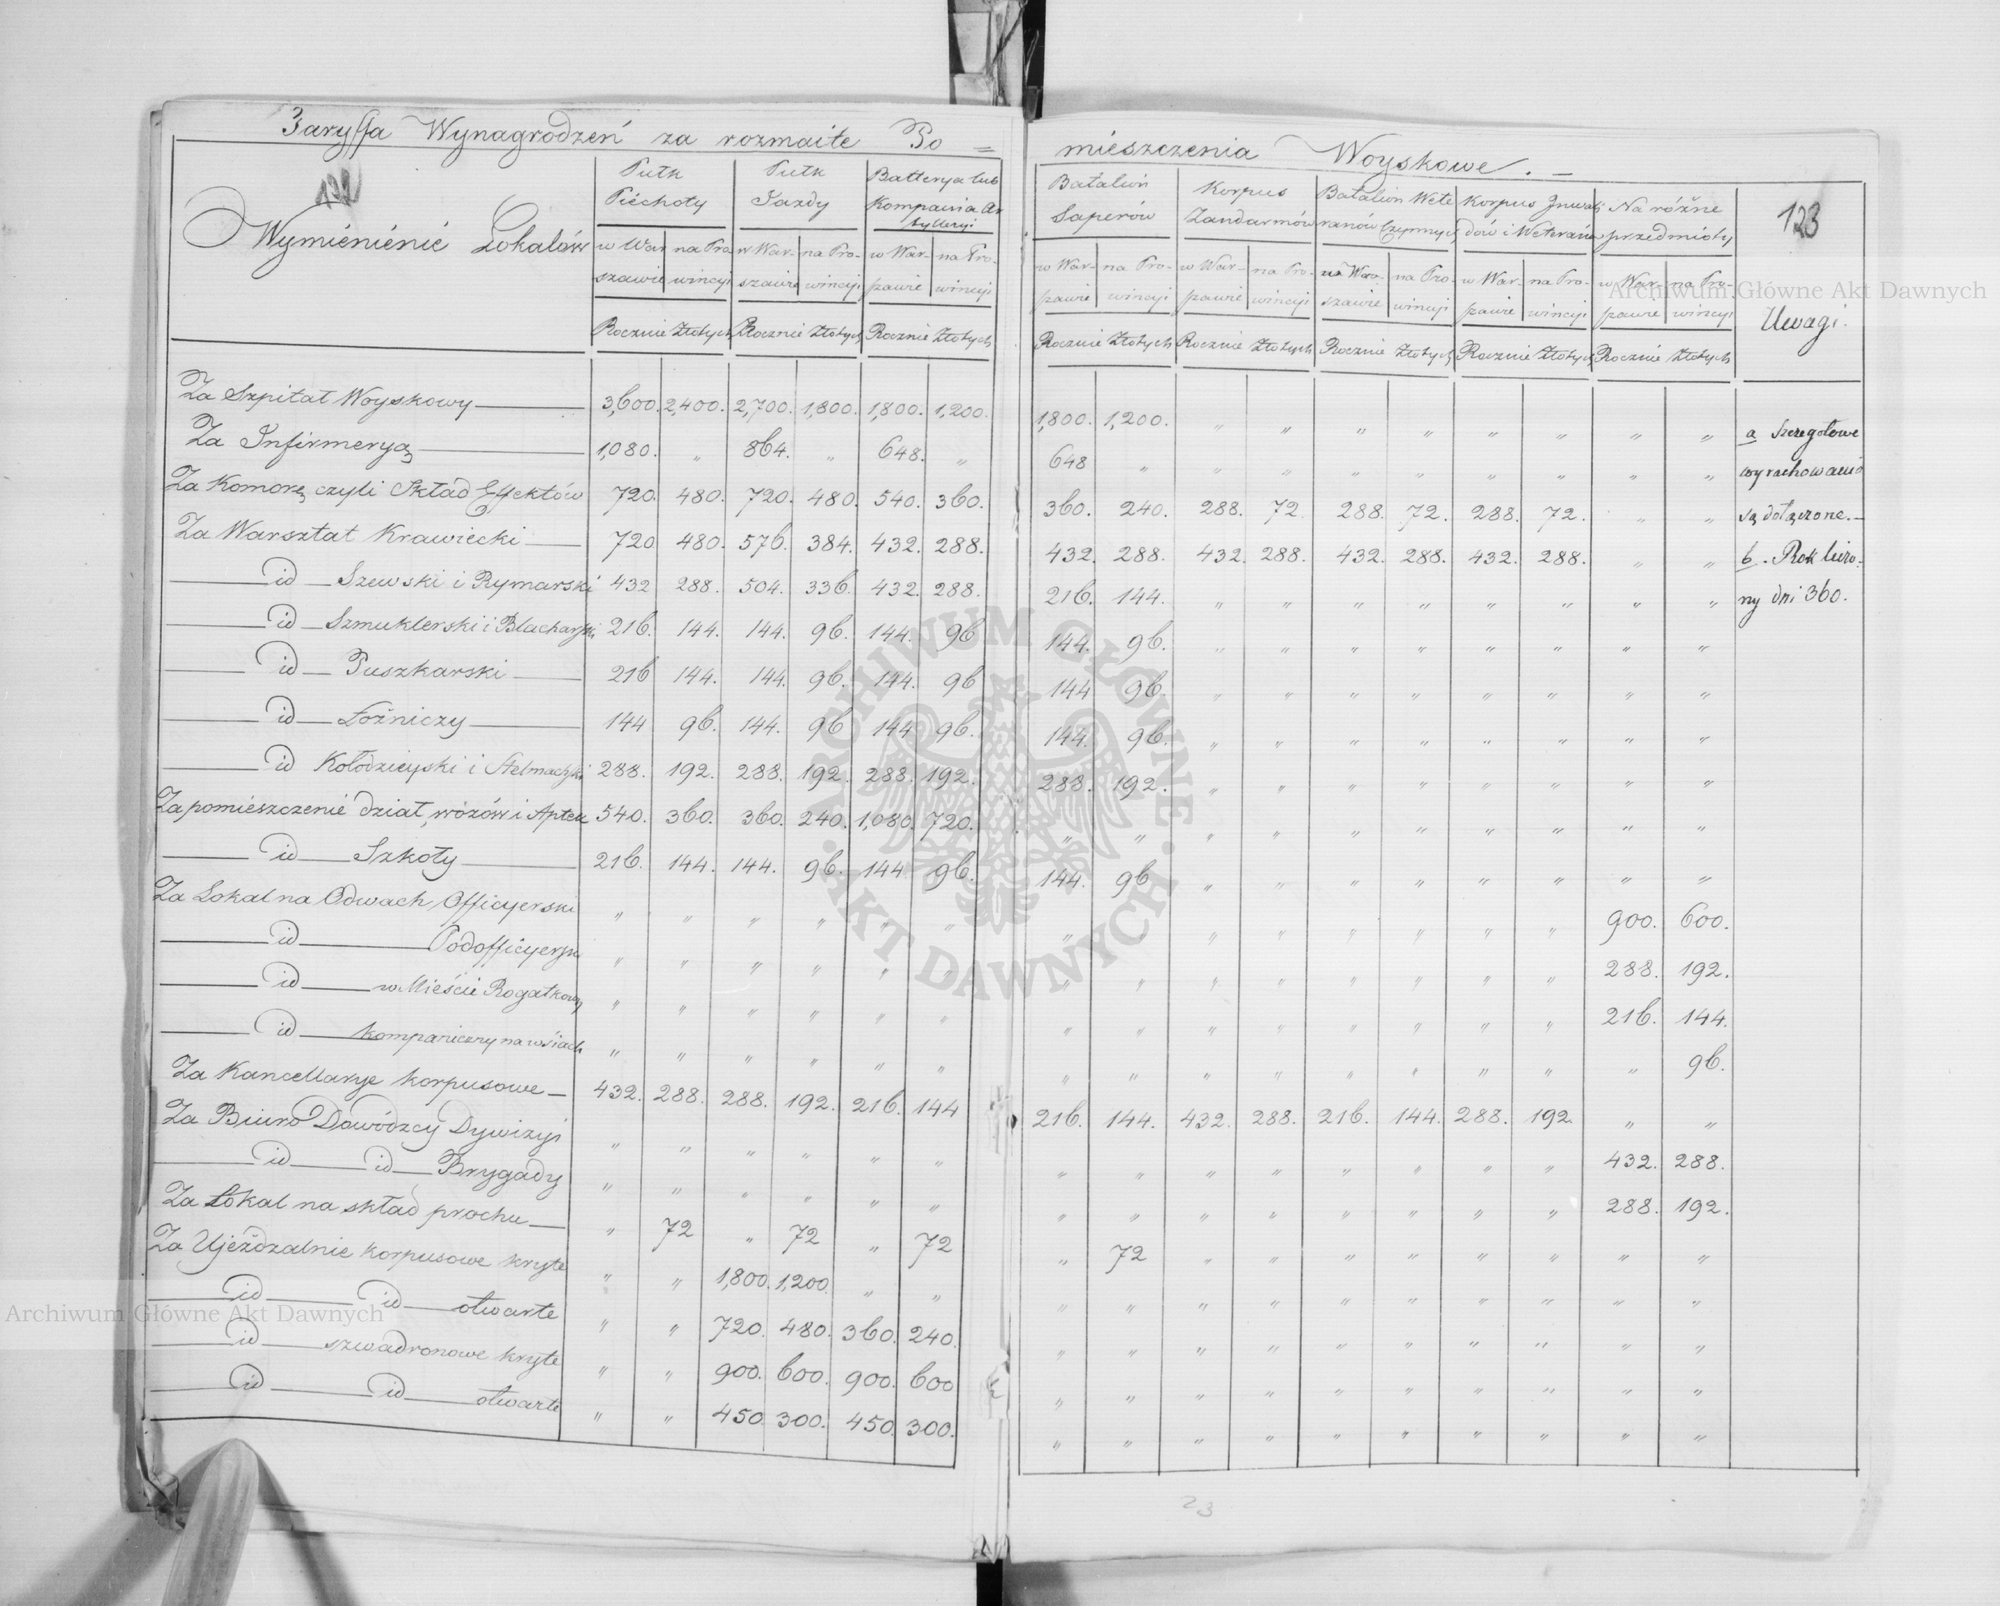 Taryffa Wynagrodzeń za rozmaite Po =
mieszczenia Woyskowe. —
123
Wymienienie Lokalów
Pułk Piechoty | Pułk Jazdy | Batterya lub Kompania Artylleryi | Batalion Saperów | Korpus Żandarmów | Batalion Weteranów Czynnych | Korpus Inwalidów i Weteranów | Na różne przedmioty | Uwagi.
w Warszawie | na Prowincyi | w Warszawie | na Prowincyi | w Warszawie | na Prowincyi | w Warszawie | na Prowincyi | w Warszawie | na Prowincyi | w Warszawie | na Prowincyi | w Warszawie | na Prowincyi | w Warszawie | na Prowincyi
Rocznie Złotych | Rocznie Złotych | Rocznie Złotych | Rocznie Złotych | Rocznie Złotych | Rocznie Złotych | Rocznie Złotych | Rocznie Złotych
Za Szpital Woyskowy 3,600. 2,400. 2,700. 1,800. 1,800. 1,200. 1,800. 1,200. " " " " " " " " a Szczegółowe
Za Infirmeryą 1,080. " 864. " 648. " 648 " " " " " " " " " wyrachowania
Za Komorę czyli Skład Effektów 720. 480. 720. 480. 540. 360. 360. 240. 288. 72 288. 72. 288. 72. " " są dołączone.—
Za Warsztat Krawiecki 720 480. 576. 384. 432. 288. 432. 288. 432. 288. 432. 288. 432. 288. " " b. Rok liczo-
id Szewski i Rymarski 432 288. 504. 336. 432. 288. 216. 144. " " " " " " " " ny dni 360.
id Szmuklerski i Blacharski 216. 144. 144. 96. 144. 96 144. 96. " " " " " " " "
id Puszkarski 216 144. 144. 96. 144. 96 144 96. " " " " " " " "
id Łożniczy 144 96. 144. 96 144 96. 144. 96. " " " " " " " "
id Kołodzieyski i Stelmachski 288. 192. 288. 192. 288. 192. 288. 192. " " " " " " " "
Za pomieszczenie dział, wozów i Aptek 540. 360. 360. 240. 1,080. 720. " " " " " " " " " "
id Szkoły 216. 144. 144. 96. 144 96. 144. 96 " " " " " " " "
Za Lokal na Odwach Officyerski " " " " " " " " " " " " " " 900. 600.
id Podofficyerski " " " " " " " " " " " " " " 288. 192.
id w Mieście Rogatkowy " " " " " " " " " " " " " " 216. 144.
id kompaniczny na wsiach " " " " " " " " " " " " " " " 96.
Za Kancellarye korpusowe 432. 288. 288. 192. 216. 144 216. 144. 432. 288. 216. 144. 288. 192. " "
Za Biuro Dowódzcy Dywizyi " " " " " " " " " " " " " " 432. 288.
id id Brygady " " " " " " " " " " " " " " 288. 192.
Za Lokal na skład prochu " 72 " 72 " 72 " 72 " " " " " " " "
Za Ujeżdzalnie korpusowe kryte " " 1,800. 1,200. " " " " " " " " " " " "
id id otwarte " " 720. 480. 360. 240. " " " " " " " " " "
id szwadronowe kryte " " 900. 600. 900. 600 " " " " " " " " " "
id id otwarte " " 450. 300. 450. 300. " " " " " " " " " "
23
ARCHIWUM GŁÓWNE · AKT DAWNYCH ·
Archiwum Główne Akt Dawnych
Archiwum Główne Akt Dawnych